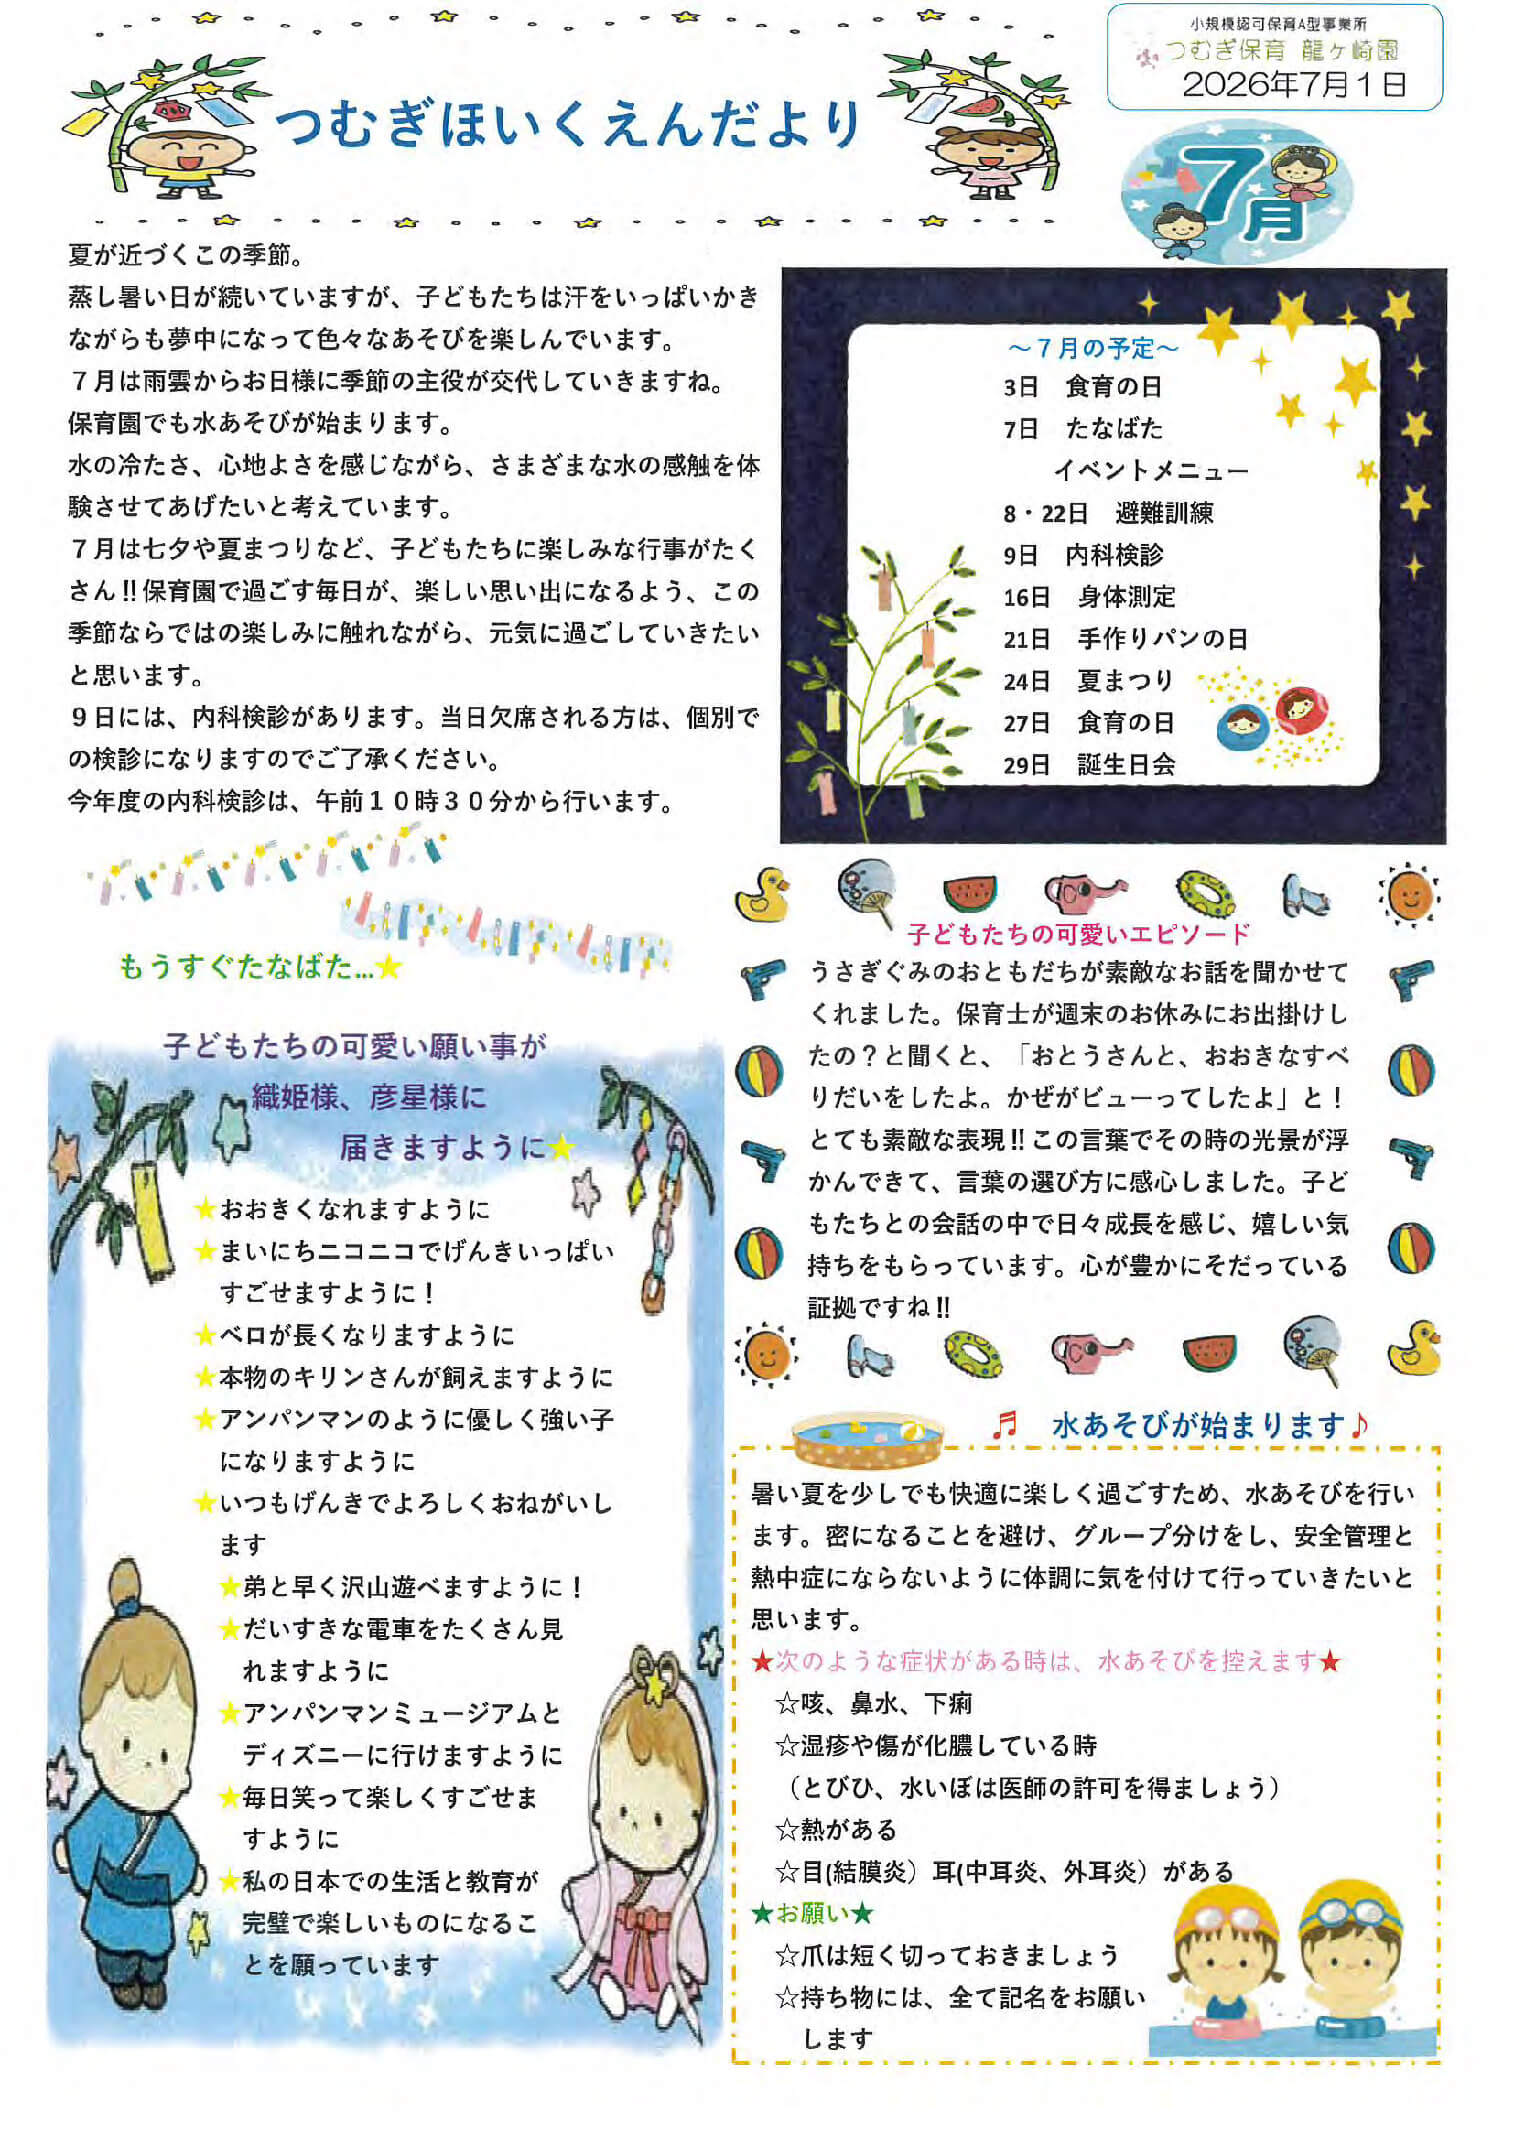 小規模認可保育A型事業所
つむぎ保育 龍ヶ崎園
2026年7月1日
つむぎほいくえんだより
7月
夏が近づくこの季節。
蒸し暑い日が続いていますが、子どもたちは汗をいっぱいかき
ながらも夢中になって色々なあそびを楽しんでいます。
７月は雨雲からお日様に季節の主役が交代していきますね。
保育園でも水あそびが始まります。
水の冷たさ、心地よさを感じながら、さまざまな水の感触を体
験させてあげたいと考えています。
７月は七夕や夏まつりなど、子どもたちに楽しみな行事がたく
さん‼保育園で過ごす毎日が、楽しい思い出になるよう、この
季節ならではの楽しみに触れながら、元気に過ごしていきたい
と思います。
９日には、内科検診があります。当日欠席される方は、個別で
の検診になりますのでご了承ください。
今年度の内科検診は、午前１０時３０分から行います。
～７月の予定～
3日　食育の日
7日　たなばた
イベントメニュー
8・22日　避難訓練
9日　内科検診
16日　身体測定
21日　手作りパンの日
24日　夏まつり
27日　食育の日
29日　誕生日会
もうすぐたなばた…★
子どもたちの可愛い願い事が
織姫様、彦星様に
届きますように★
★おおきくなれますように
★まいにちニコニコでげんきいっぱい
すごせますように！
★ベロが長くなりますように
★本物のキリンさんが飼えますように
★アンパンマンのように優しく強い子
になりますように
★いつもげんきでよろしくおねがいし
ます
★弟と早く沢山遊べますように！
★だいすきな電車をたくさん見
れますように
★アンパンマンミュージアムと
ディズニーに行けますように
★毎日笑って楽しくすごせま
すように
★私の日本での生活と教育が
完璧で楽しいものになるこ
とを願っています
子どもたちの可愛いエピソード
うさぎぐみのおともだちが素敵なお話を聞かせて
くれました。保育士が週末のお休みにお出掛けし
たの？と聞くと、「おとうさんと、おおきなすべ
りだいをしたよ。かぜがビューってしたよ」と！
とても素敵な表現‼この言葉でその時の光景が浮
かんできて、言葉の選び方に感心しました。子ど
もたちとの会話の中で日々成長を感じ、嬉しい気
持ちをもらっています。心が豊かにそだっている
証拠ですね‼
♬　水あそびが始まります♪
暑い夏を少しでも快適に楽しく過ごすため、水あそびを行い
ます。密になることを避け、グループ分けをし、安全管理と
熱中症にならないように体調に気を付けて行っていきたいと
思います。
★次のような症状がある時は、水あそびを控えます★
☆咳、鼻水、下痢
☆湿疹や傷が化膿している時
（とびひ、水いぼは医師の許可を得ましょう）
☆熱がある
☆目(結膜炎）耳(中耳炎、外耳炎）がある
★お願い★
☆爪は短く切っておきましょう
☆持ち物には、全て記名をお願い
します